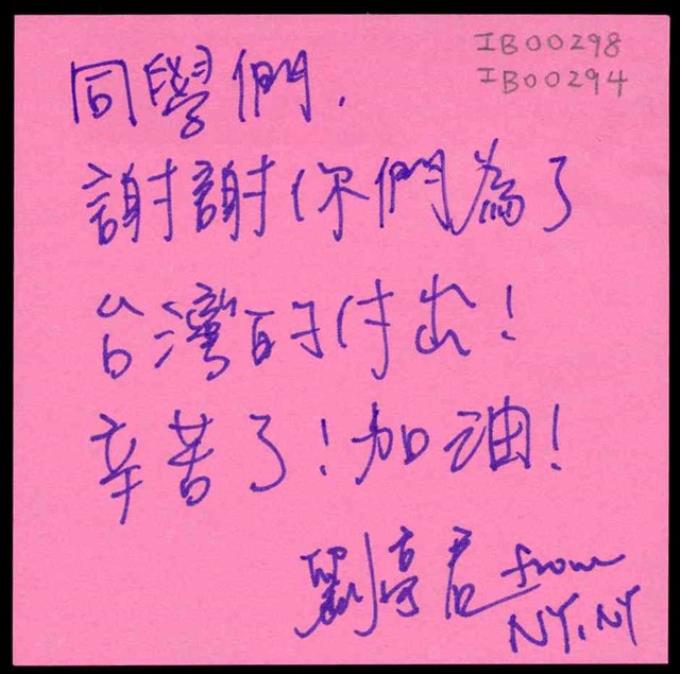 IB00298
IB00294
同學們,
謝謝你們為了
台灣的付出!
辛苦了!加油!
劉亭君 from
NY, NY